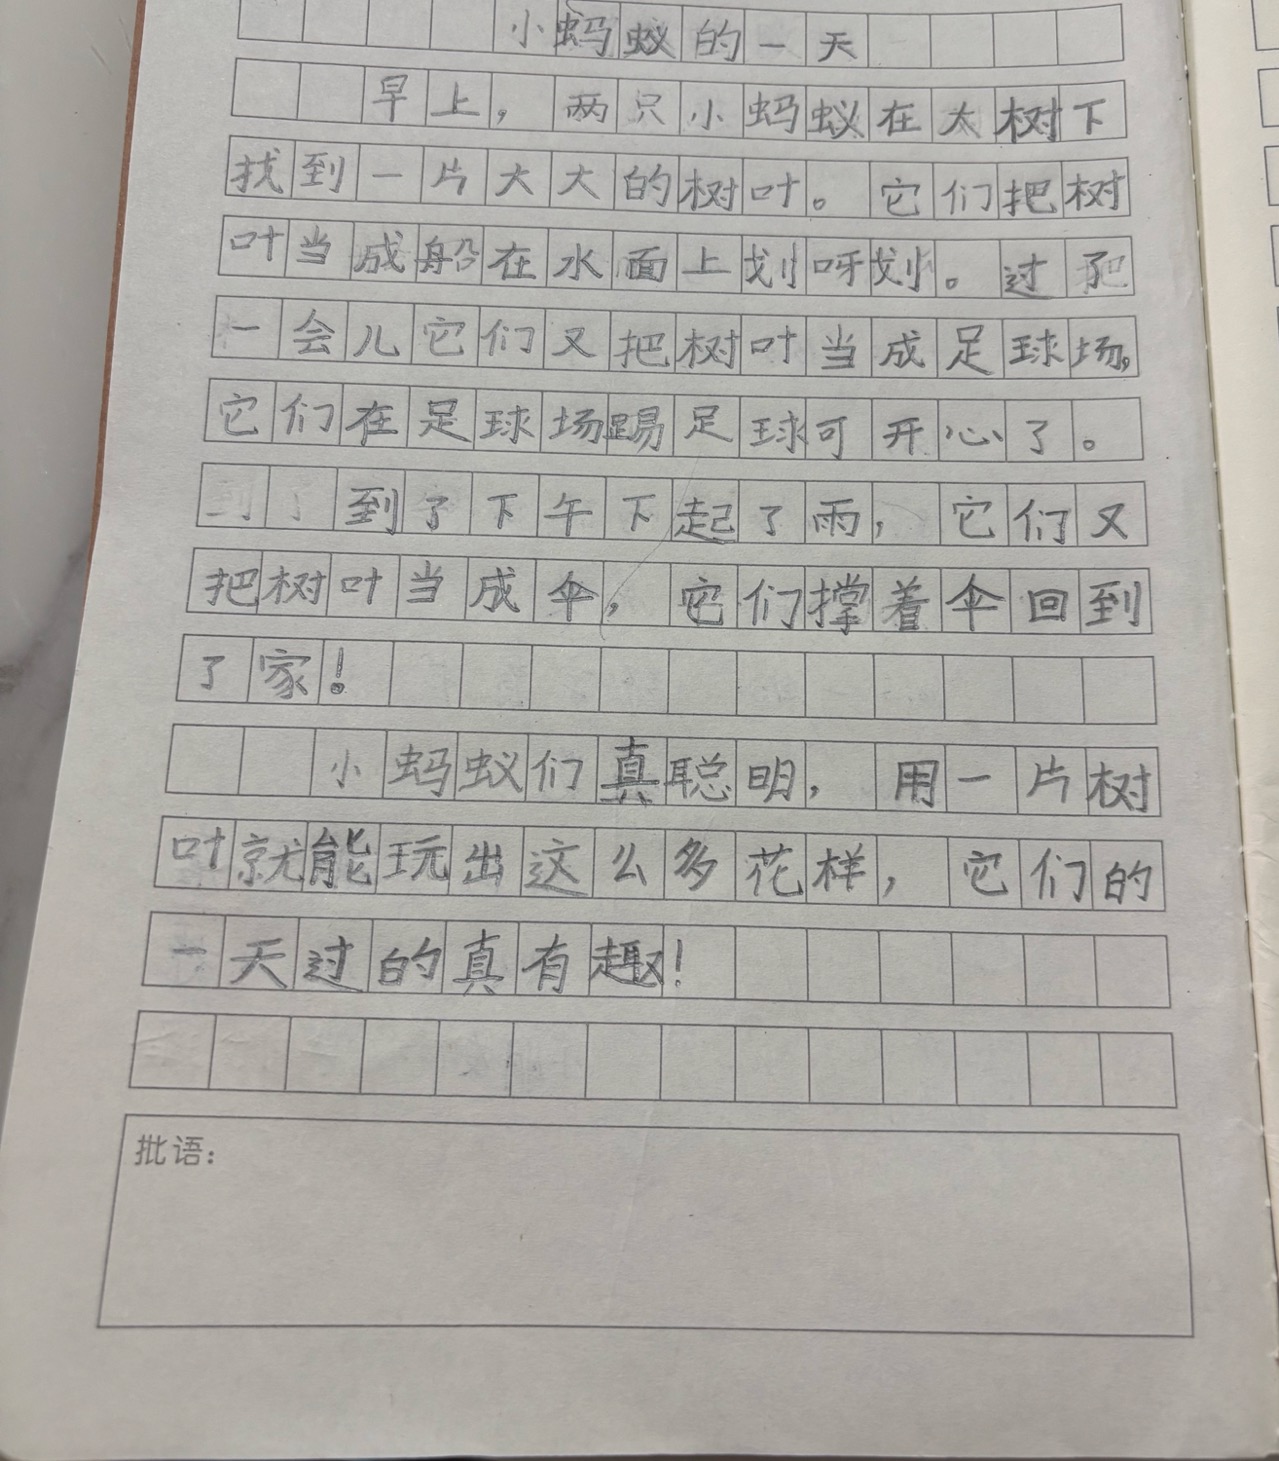 小蚂蚁的一天
早上，两只小蚂蚁在大树下
找到一片大大的树叶。它们把树
叶当成船在水面上划呀划。过了
一会儿它们又把树叶当成足球场，
它们在足球场踢足球可开心了。
到了下午下起了雨，它们又
把树叶当成伞，它们撑着伞回到
了家！
小蚂蚁们真聪明，用一片树
叶就能玩出这么多花样，它们的
一天过的真有趣！
批语：